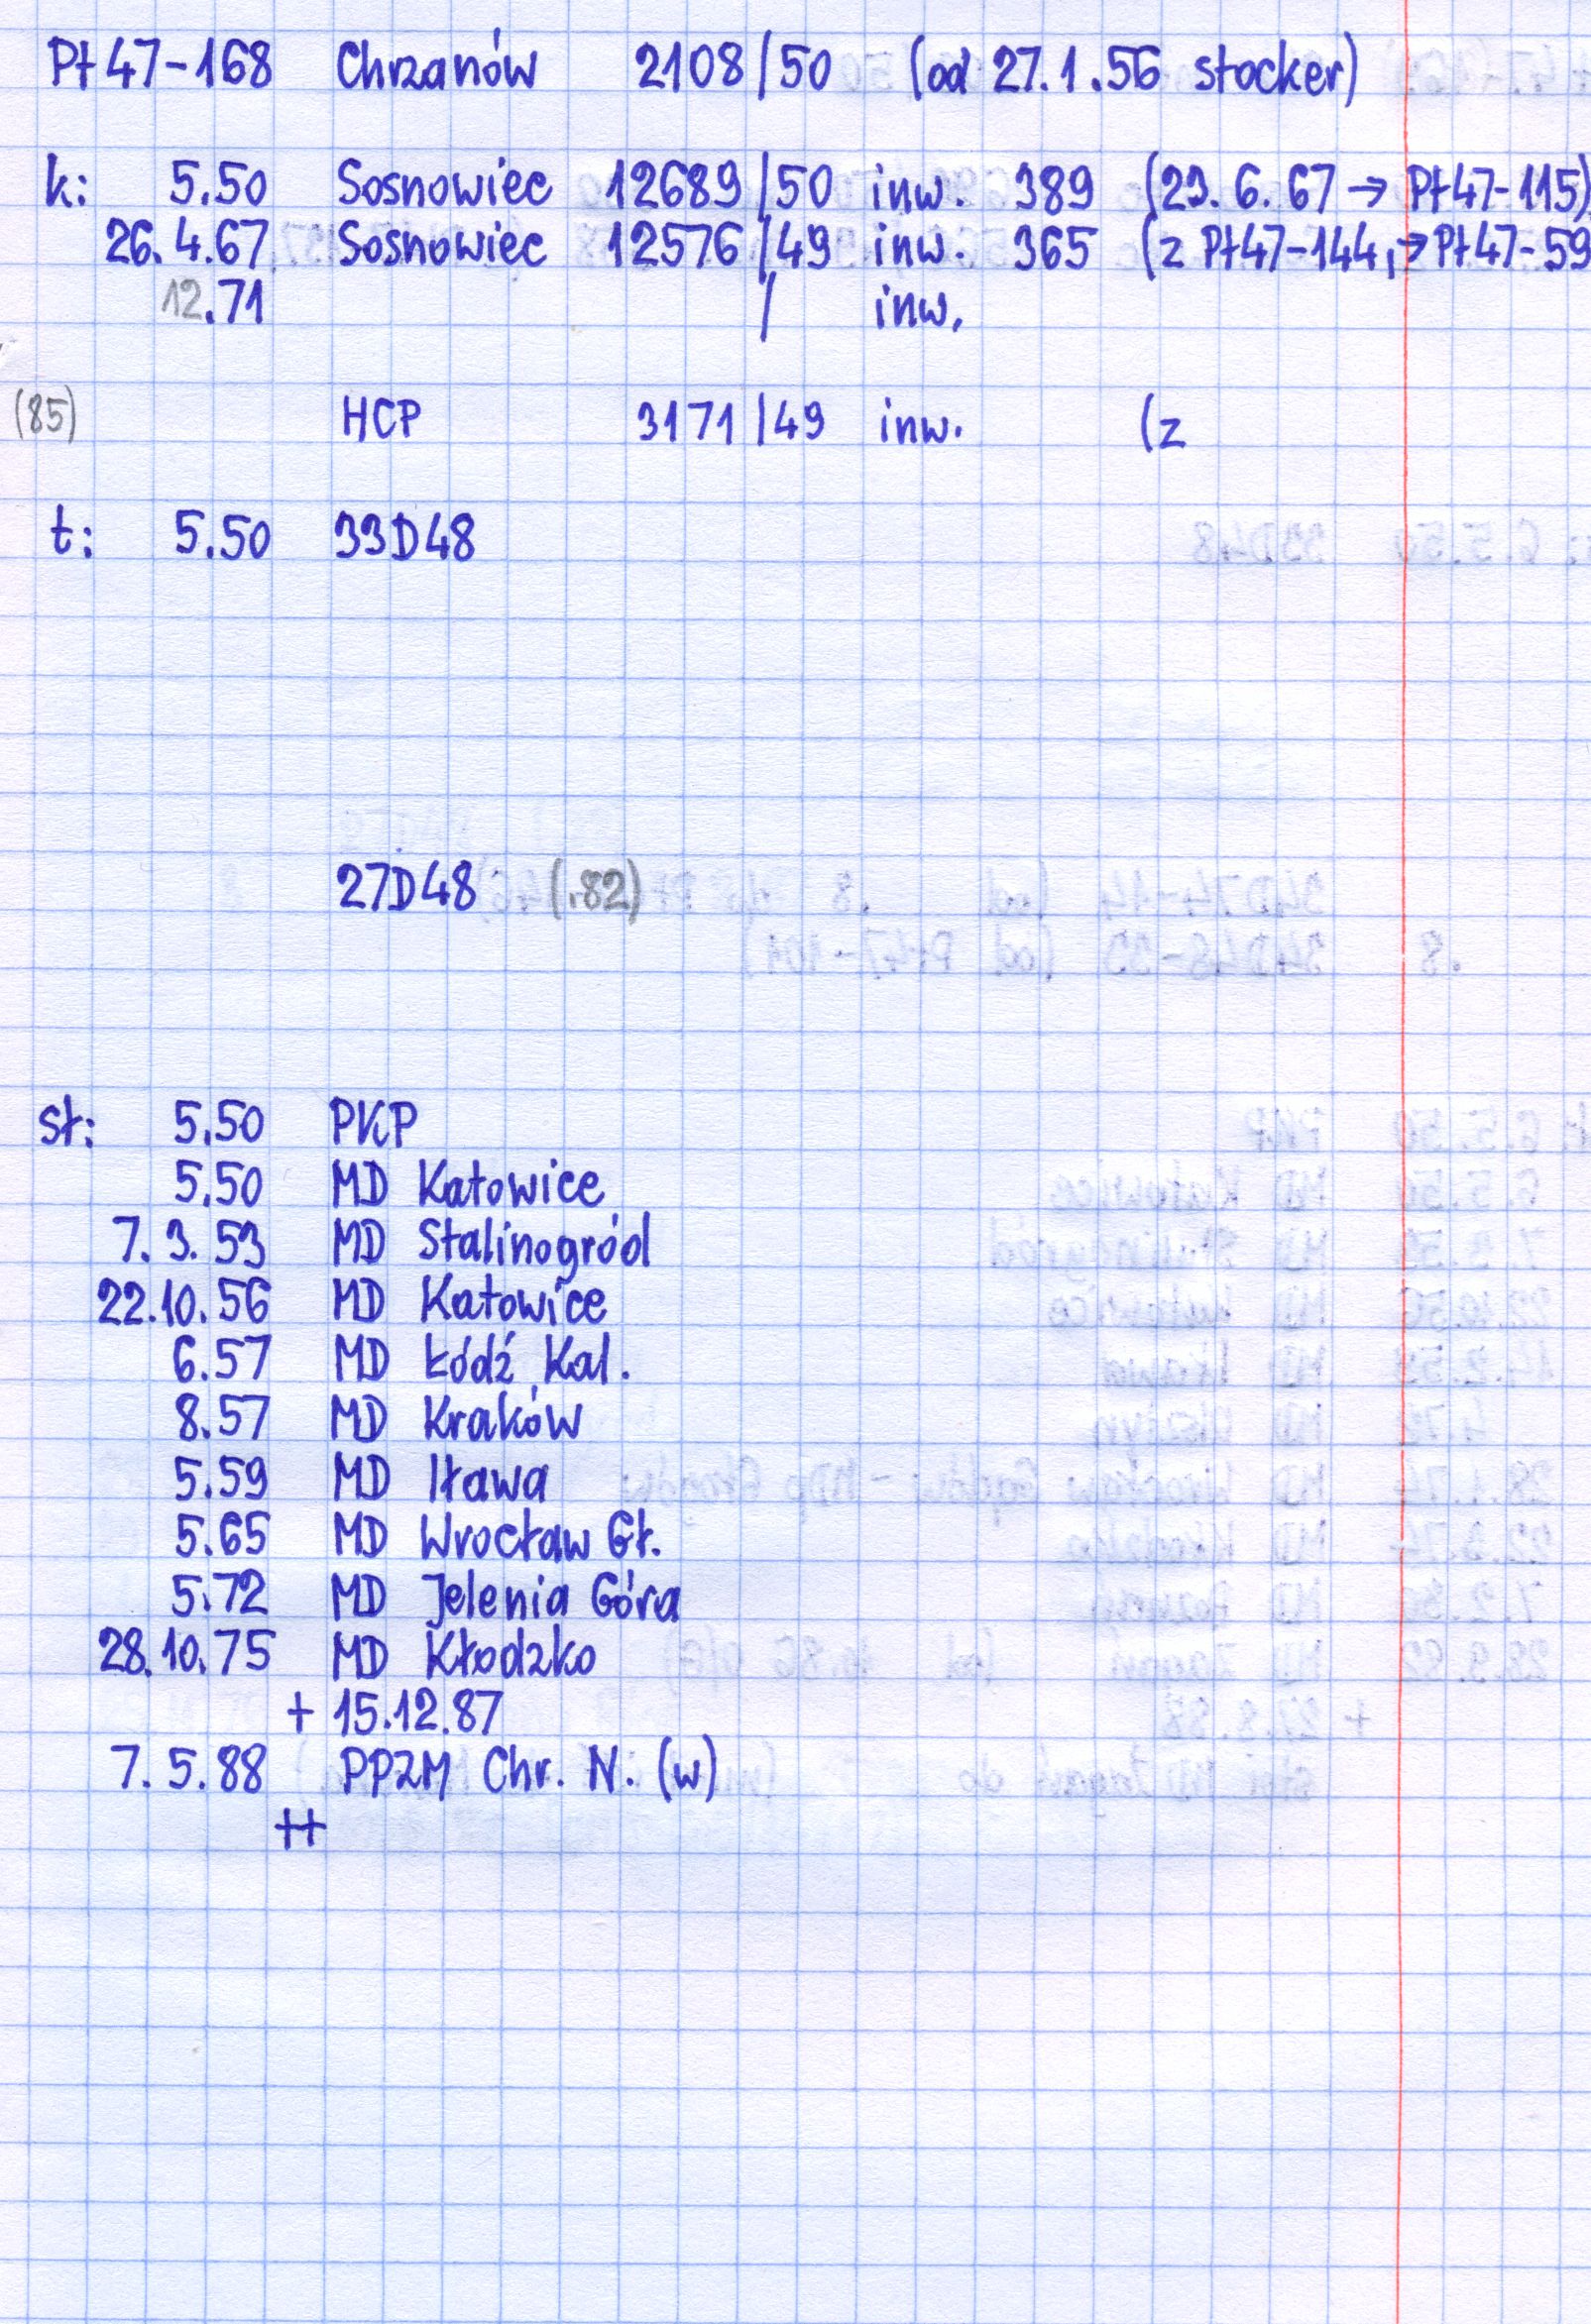 Pt47-168 Chrzanów 2108/50 (od 27.1.56 stocker)
k: 5.50 Sosnowiec 12689/50 inw. 389 (29.6.67 → Pt47-115)
26.4.67 Sosnowiec 12576/49 inw. 365 (z Pt47-144, → Pt47-59
12.71 / inw.
(85) HCP 3171/49 inw. (z
t: 5.50 33D48
27D48 (.82)
sł: 5.50 PKP
5.50 MD Katowice
7.3.53 MD Stalinogród
22.10.56 MD Katowice
6.57 MD Łódź Kal.
8.57 MD Kraków
5.59 MD Iława
5.65 MD Wrocław Gł.
5.72 MD Jelenia Góra
28.10.75 MD Kłodzko
+ 15.12.87
7.5.88 PPZM Chr. N. (w)
++